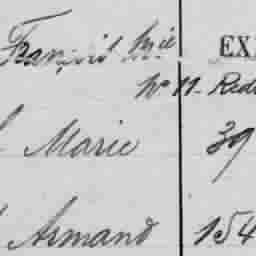 François Mie EX
No 11 Redi
Marie 39
Armand 154